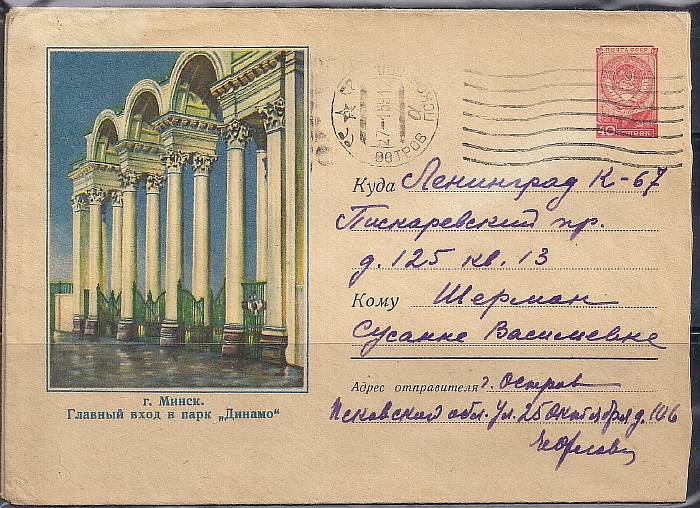 ПОЧТА СССР
40 КОПЕЕК
ОСТРОВ
Куда Ленинград К-67
Пискаревский пр.
д. 125 кв. 13
Кому Шерман
Сусанне Васильевне
Адрес отправителя г. Остров
Псковской обл. Ул. 25 Октября д.
г. Минск.
Главный вход в парк „Динамо“